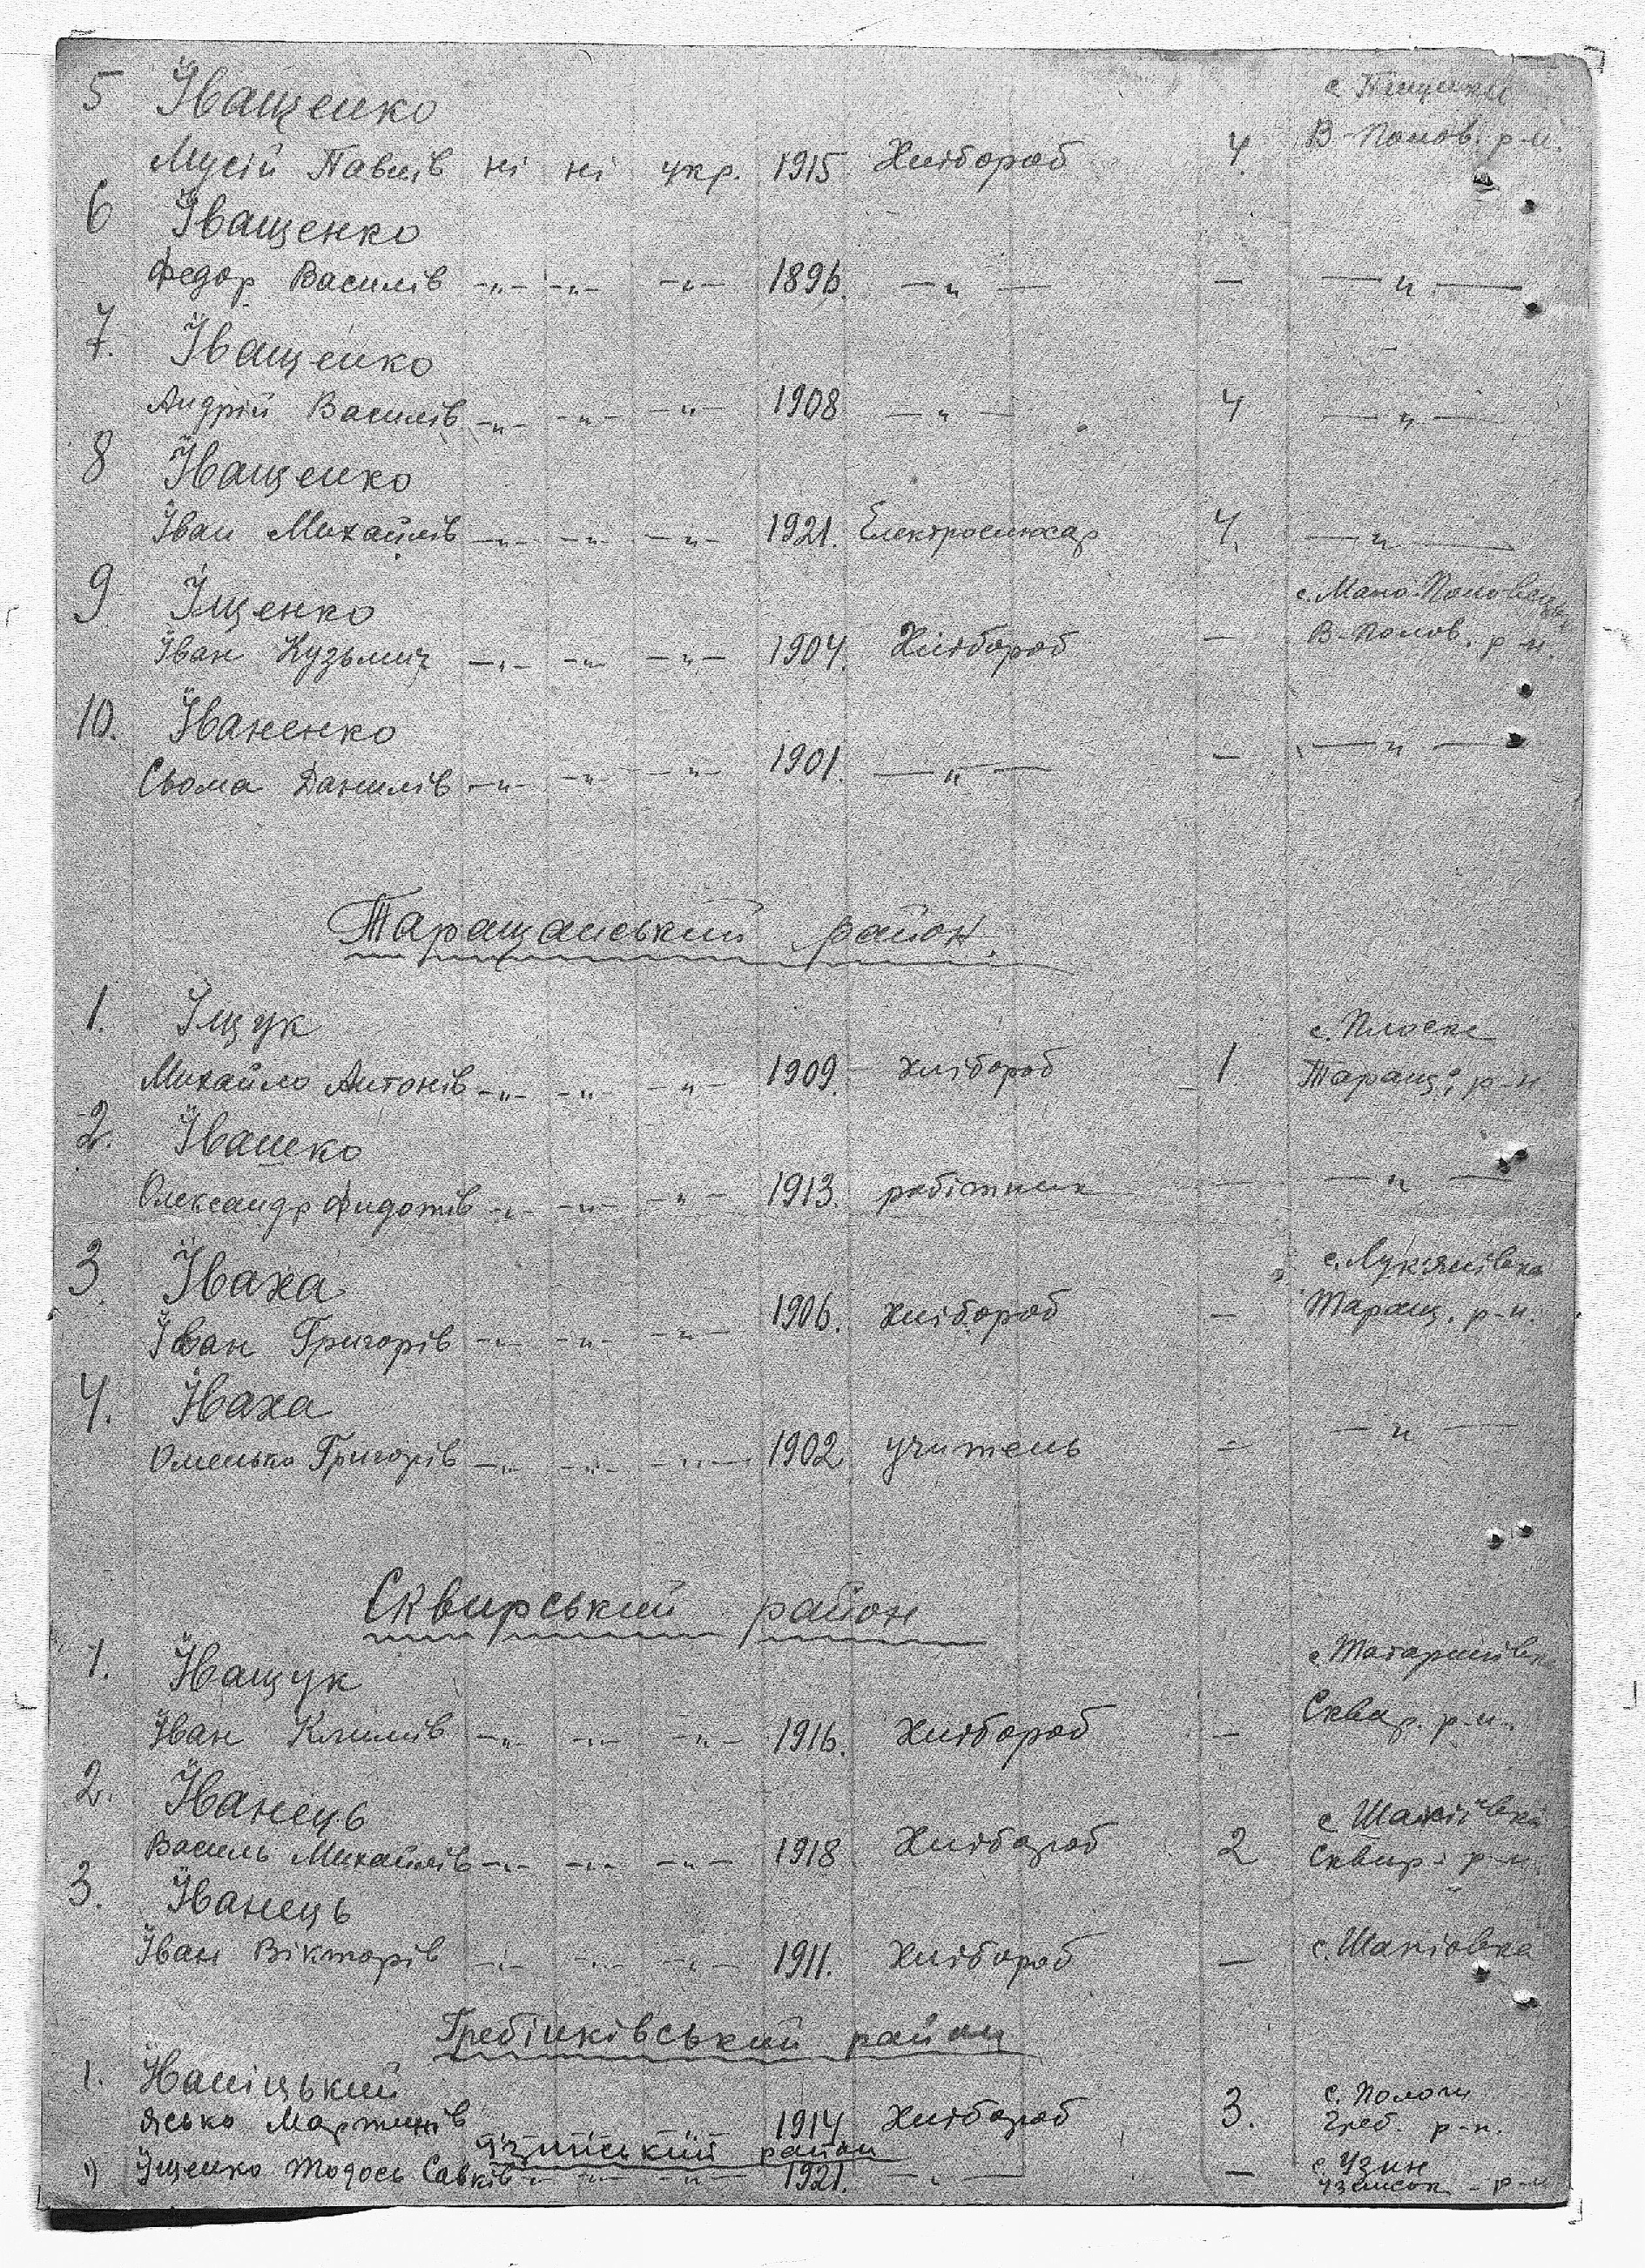 5 Іващенко с. Пищики
Мусій Павлів ні ні укр. 1915 Хлібороб 4 В-Полов. р-н.
6 Іващенко
Федор Василів -„- -„- -„- 1896. -„- — -„-
7. Іващенко
Андрій Василів -„- -„- -„- 1908 -„- 4 -„-
8 Іващенко
Іван Михайлів -„- -„- -„- 1921. Електрослюсар 4. -„-
9 Іщенко с. Мало-Половецьк
Іван Кузьмич -„- -„- -„- 1904. Хлібороб — В-Полов. р-н.
10. Іваненко
Сьома Данилів -„- -„- -„- 1901. -„- — -„-
Таращанський район.
1. Іщук с. Плоске
Михайло Антонів -„- -„- -„- 1909. хлібороб 1. Таращ. р-н
2. Івашко
Олександр Федотів -„- -„- -„- 1913. робітник — -„-
3. Іваха с. Лук'янівка
Іван Григорів -„- -„- -„- 1906. хлібороб — Таращ. р-н.
4. Іваха
Омелько Григорів -„- -„- -„- 1902 учитель — -„-
Сквирський район
1. Іващук с. Татаринівка
Іван Климів -„- -„- -„- 1916. Хлібороб — Сквир. р-н.
2. Іванець с. Шапіївка
Василь Михайлів -„- -„- -„- 1918 Хлібороб 2 Сквир. р-н.
3. Іванець
Іван Вікторів -„- -„- -„- 1911. Хлібороб — с. Шапіовка
Гребінківський район
1. Іваніцький с. Пологи
Ясько Мартинів 1914 Хлібороб 3. Греб. р-н.
Узинський район
1) Іщенко Тодось Савків -„- -„- -„- 1921. -„- — с. Узин
Узинськ - р-н